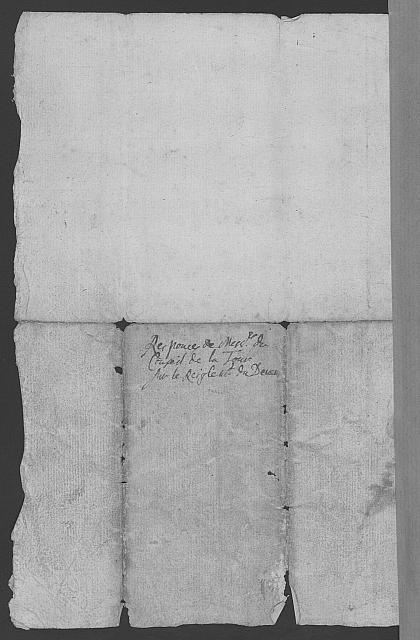 Responce de Mess.rs du
Conseil de la Tour
sur le Reiglem.t du Devin